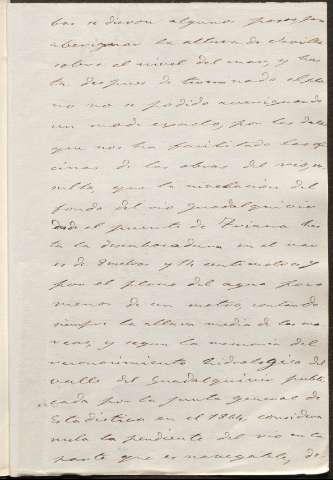 bas se dieron algunos pasos para
averiguar la altura de Sevilla
sobre el nivel del mar, y has
ta despues de terminado el pla
no no se podido averiguando
un modo exacto, por los datos
que nos ha facilitado las ofi
cinas de las obras del
que la nivelacion del
fondo del rio Guadalquivir
desde el puente de Triana has
ta la desembocadura en el mar
es de metros y centimetros y
por el plano del agua poco
menos de un metro, contando
siempre la altura media de las ma
reas, y segun la memoria del
reconocimiento hidrologico del
valle del Guadalquivir publi
cada por la junta general de
Estadistica en el 1864, considera
nula la pendiente del rio en la
parte que es navegable, de